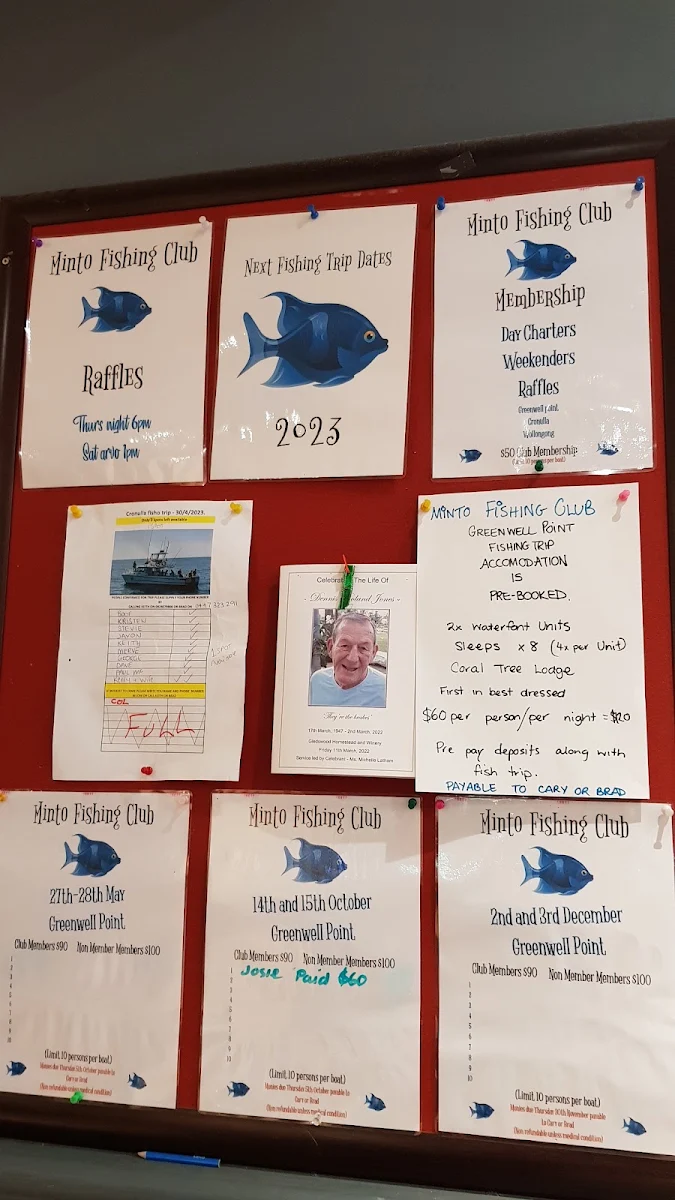 Minto Fishing Club
Raffles
Thurs night 6pm
Sat arvo 1pm
Next Fishing Trip Dates
2023
Minto Fishing Club
Membership
Day Charters
Weekenders
Raffles
Greenwell Point
Cronulla
Wollongong
$50 Club Membership
(Limit 10 persons per boat)
Cronulla fishing trip - 30/4/2023.
KRISTEN
STEVIE
JAYDON
KEITH
MERVE
GEORGE
DAVE
COL
FULL
Celebrating The Life Of
17th March, 1947 - 2nd March, 2022
Friday 11th March, 2022
Service led by Celebrant - Ms. Michelle Latham
MINTO FISHING CLUB
GREENWELL POINT
FISHING TRIP
ACCOMODATION
IS
PRE-BOOKED.
2x Waterfont Units
Sleeps x 8 (4x per Unit)
Coral Tree Lodge
First in best dressed
$60 per person/per night = $120
Pre pay deposits along with
fish trip.
PAYABLE TO CARY OR BRAD
Minto Fishing Club
27th-28th May
Greenwell Point
Club Members $90 Non Member Members $100
1
2
3
4
5
6
7
8
9
10
(Limit 10 persons per boat)
Monies due Thursday 5th October payable to
Cary or Brad
(Non refundable unless medical condition)
Minto Fishing Club
14th and 15th October
Greenwell Point
Club Members $90 Non Member Members $100
1 Josie Paid $60
2
3
4
5
6
7
8
9
10
(Limit 10 persons per boat)
Monies due Thursday 5th October payable to
Cary or Brad
(Non refundable unless medical condition)
Minto Fishing Club
2nd and 3rd December
Greenwell Point
Club Members $90 Non Member Members $100
1
2
3
4
5
6
7
8
9
10
(Limit 10 persons per boat)
Monies due Thursday 30th November payable
to Cary or Brad
(Non refundable unless medical condition)